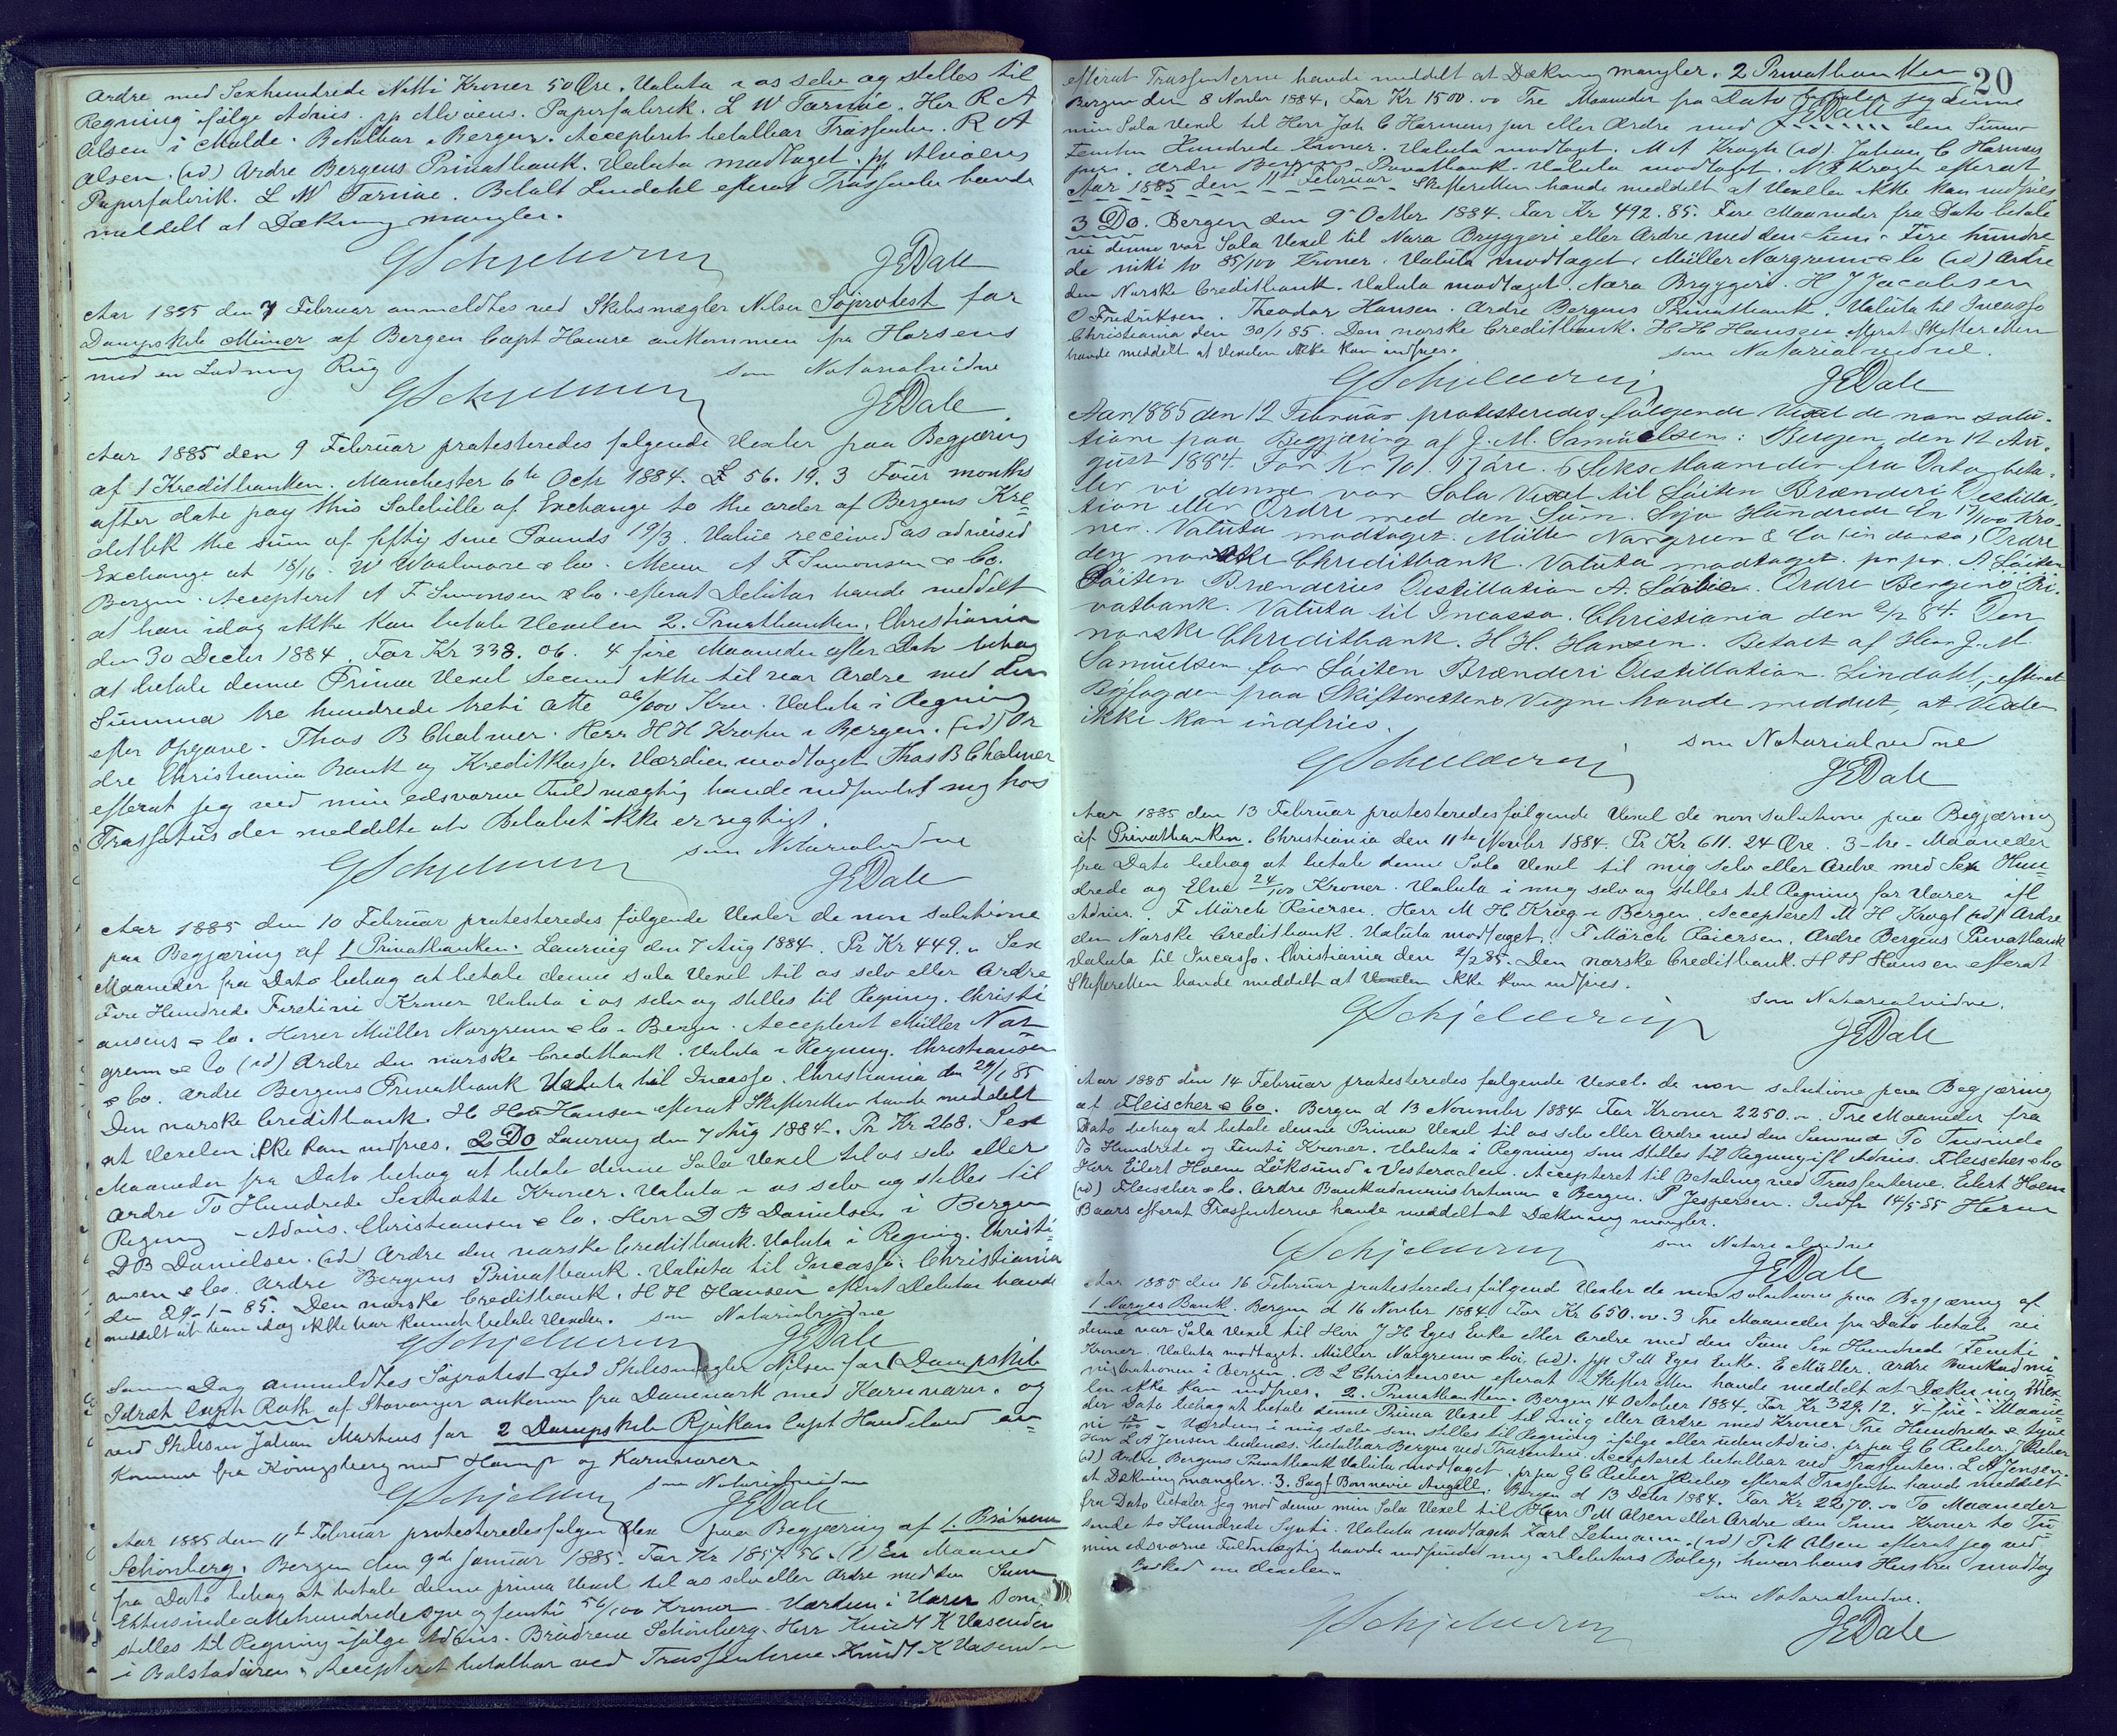 Ordre med Sexhundrede Nitti Kroner 50 Øre. Valuta i os selv og stilles til
Regning ifølge Advis. pp Alvøens Papirfabrik. L W Farniæ. Her R A
Olsen i Molde. Betalbar i Bergen. Accepteret betalbar Trassenten. R A
Olsen. (id) Ordre Bergens Privatbank. Valuta modtaget. pp Alvøens
Papirfabrik. L W Farniæ. Betalt Lindahl efterat Trassenten havde
meddelt at Dækning mangler.
GSchjelderup JEDale
Aar 1885 den 7 Februar anmeldtes ved Skibsmægler Nilsen Søprotest for
Dampskib Mimer af Bergen Capt Hauere ankommen fra Horsens
med en Ladning Rug som Notarialvidne
GSchjelderup JEDale
Aar 1885 den 9 Februar protesteredes følgende Vexler paa Begjæring
af 1 Kreditbanken. Manchester 6th Octr 1884. £ 56. 19. 3 Four months
after date pay this Solabille of Exchange to the order of Bergens Kre=
ditbk the sum of fifty six Pounds 19/3. Value received as advised
Exchange at 18/16. W Woolmore & Co. Messrs A F Simonsen & Co.
Bergen. Accepteret A F Simonsen & Co. efterat Debitor havde meddelt
at han idag ikke kan betale Vexelen 2. Privatbanken, Christiania
den 30 Decbr 1884. For Kr 338. 06. 4 fire Maaneder efter Dato behag
at betale denne Prima Vexel Secunda ikke til vor Ordre med den
Summa tre hundrede treti otte 06/100 Krn. Valuta i Regning
efter Opgave. Thos B Chalmer. Herr H H Krohn i Bergen. (id) Or
dre Christiania Bank og Kreditkasse. Værdien modtaget Thos B Chalmer
efterat jeg ved min edsvorne Fuldmægtig havde indfundet mig hos
Trassatus der meddelte at Beløbet ikke er rigtigt.
som Notarialvidne
GSchjelderup JEDale
Aar 1885 den 10 Februar protesteredes følgende Vexler de non solutione
paa Begjæring af 1 Privatbanken. Laurvig den 7 Aug 1884. Pr Kr 449. „ Sex
Maaneder fra Dato behag at betale denne sola Vexel til os selv eller Ordre
Fire Hundrede Firetini Kroner Valuta i os selv og stilles til Regning. Christi
ansens & Co. Herrer Müller Norgrenn & Co i Bergen. Accepteret Müller Nor
grenn & Co (id) Ordre den norske Creditbank. Valuta i Regning. Christiansen
& Co. Ordre Bergens Privatbank Valuta til Incasso. Christiania den 29/1 85
Den norske Creditbank. H H Hansen efterat Skifteretten havde meddelt
at Vexelen ikke kan indfries. 2 Do Laurvig den 7 Aug 1884. Pr Kr 268. Sex
Maaneder fra Dato behag at betale denne Sola Vexel til os selv eller
Ordre To Hundrede Sextiotte Kroner. Valuta i os selv og stilles til
Regning – Advis. Christiansen & Co. Herr D B Danielsen i Bergen
D B Danielsen. (id) Ordre den norske Creditbank. Valuta i Regning. Christi=
ansen & Co. Ordre Bergens Privatbank. Valuta til Incasso. Christiania
den 29–1–85. Den norske Creditbank. H H Hansen efterat Debitor havde
meddelt at han idag ikke har kunnet betale Vexelen. som Notarialvidne
GSchjelderup JEDale
Samme Dag anmeldtes Søprotest ved Skibsmægler Nilsen for 1 Dampskib
Idræt Capt Roth af Stavanger ankommen fra Danmark med Kornvarer. og
ved Skibsm Johan Martens for 2 Dampskib Rjukan Capt Haudeland an=
kommen fra Königsberg med Hamp og Kornvarer.
som Notarialvidne
GSchjelderup JEDale
Aar 1885 den 11t Februar protesteredes følgen Vex paa Begjæring af 1. Brødrene
Schönberg. Bergen den 9de Januar 1885. For Kr 1857. 56. (1) En Maaned
fra Dato behag at betale denne prima Vexel til os selv eller Ordre med den Sum
Ettusinde ottehundrede syv og femti 56/100 Kroner. Værdien i Varer som
stilles til Regning ifølge Advis. Brødrene Schönberg. Herr Knudt K Vasenden
i Bolstadøren. Accepteret betalbar ved Trassenterne Knudt K Vasenden
20
efterat Trassenterne havde meddelt at Dækning mangler. 2 Privatbanken
Bergen den 8 Novbr 1884. For Kr 1500. oo Tre Maaneder fra Dato betaler jeg denne
JEDale
min Sola Vexel til Herr Joh C Harmens jur eller Ordre med den Summa
Femten Hundrede Kroner. Valuta modtaget. M A Krogh (id). Johan C Harmens
junr. Ordre Bergens Privatbank. Valuta modtaget. Krogh efterat
Aar 1885 den 11te Februar. Skifteretten havde meddelt at Vexelen ikke kan indfries
3 Do. Bergen den 9 Octbr 1884. For Kr 492. 85. Fire Maaneder fra Dato betale
vi denne vor Sola Vexel til Nora Bryggeri eller Ordre med den Sum. Fire hundre
de nitti to 85/100 Kroner. Valuta modtaget. Müller Norgrenn & Co (id) Ordre
den Norske Creditbank. Valuta modtaget. Nora Bryggeri. H J Jacobsen
O Fredriksen. Theodor Hansen. Ordre Bergens Privatbank. Valuta til Incasso
Christiania den 30/1 85. Den norske Creditbank. H H Hansen efterat Skifteretten
havde meddelt at Vexelen ikke kan indfries. som Notarialvidne.
GSchjelderup JEDale
Aar 1885 den 12 Februar protesteredes følgende Vexel de non solu-
tione paa Begjæring af J. M. Samuelsen: Bergen den 12 Au-
gust 1884. For Kr 701. 17 øre. 6 Seks Maaneder fra Dato beta-
ler vi denne vor Sola Vexel til Löiten Brænderi Destilla-
tion eller Ordre med den Sum. Syv Hundrede En 17/100 Kro-
ner. Valuta modtaget. Müller Norgrenn & Co (in dorso) Ordre
den norske Chreditbank. Valuta modtaget. pr. pr. A. Löiten
Löiten Brænderies Destillation A. Ordre Bergens Pri-
vatbank. Valuta til Incasso. Christiania den 2/12 84. Den
norske Chreditbank. H H. Hansen. Betalt af Herr J. M
Samuelsen for Löiten Brænderi Destillation. Lindahl, efterat
Byfogden paa Skifterettens Vegne havde meddelt, at Vexelen
ikke kan indfries.
som Notarialvidne
GSchjelderup JEDale
Aar 1885 den 13 Februar protesteredes følgende Vexel de non solutione paa Begjæring
af Privatbanken. Christiania den 11te Novbr 1884. Pr Kr 611. 24 Øre. 3–tre–Maaneder
fra Dato behag at betale denne Sola Vexel til mig selv eller Ordre med Sex Hun=
drede og Elve 24/100 Kroner. Valuta i mig selv og stilles til Regning for Varer ifl
Advis. F Mörch Reiersen. Herr M H Krog i Bergen. Accepteret M H Krogh (id) Ordre
den Norske Creditbank. Valuta modtaget. F Mörch Reiersen. Ordre Bergens Privatbank
Valuta til Incasso. Christiania den 2/2 85. Den norske Creditbank. H H Hansen efterat
Skifteretten havde meddelt at Vexelen ikke kan indfries.
som Notarialvidne.
GSchjelderup JEDale
Aar 1885 den 14 Februar protesteredes følgende Vexel de non solutione paa Begjæring
af Fleischer & Co. Bergen d 13 November 1884 For Kroner 2250. „ Tre Maaneder fra
Dato behag at betale denne Prima Vexel til os selv eller Ordre med den Summa To Tusinde
To Hundrede og Femti Kroner. Valuta i Regning som stilles til Regning ifl Advis. Fleischer & Co
Herr Eilert Hoem Löksund i Vesteraalen. Accepteret til Betaling ved Trassenterne. Eilert Hoem
(id) Fleischer & Co. Ordre Bankadministrationen i Bergen. P Jespersen. Indfr 14/5-85 Herm
Baars efterat Trassenterne havde meddelt at Dækning mangler.
som Notarialvidne
GSchjelderup JEDale
Aar 1885 den 16 Februar protesteredes følgend Vexler de non solutione paa Begjæring af
1 Norges Bank. Bergen d 16 Novbr 1884. For Kr 650. oo. 3 Tre Maaneder fra Dato betale vi
denne vor Sola Vexel til Herr J H Eges Enke eller Ordre med den Sum Sex Hundrede Femti
Kroner. Valuta modtaget. Müller Norgrenn & Co. (id). pp J M Eges Enke. E Müller. Ordre Bankadmi
nistrationen i Bergen. B L Christensen efterat Skifteretten havde meddelt at Dækning Vexe
len ikke kan indfries. 2. Privatbanken. Bergen 14 October 1884. For Kr 329. 12. 4–fire–Maane
der Dato behag at betale denne Prima Vexel til mig eller Ordre med Kroner Tre Hundrede & tyve
ni – Værdien i mig selv som stilles til Regning ifølge eller uden Advis. pr pa G C Rieber. J Rieber
Herr L A Jensen betalbar Bergen ved Trassenten. Accepteret betalbar ved Trassenten. L A Jensen.
(id) Ordre Bergens Privatbank Valuta modtaget. pr pa G C Rieber J Rieber efterat Trassenten havde meddelt
at Dækning mangler. 3. Sagf Bonnevie Angell. Bergen d 13 Decbr 1884. For Kr 2270. oo To Maaneder
fra Dato betaler jeg mod denne min Sola Vexel til Herr P M Olsen eller Ordre den Sum Kroner to Tu-
sinde to Hundrede Sytti. Valuta modtaget Karl Lehmann. (id) P M Olsen efterat jeg ved
min edsvorne Fuldmægtig havde indfundet mig i Debitors Bolig, hvor hans Hustru modtog
Besked om Vexelen.
som Notarialvidne.
GSchjelderup JEDale